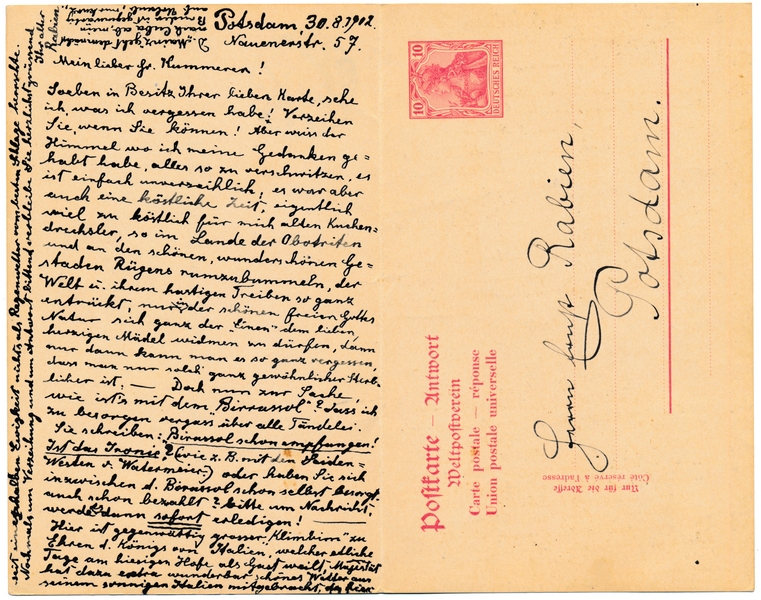 Potsdam, 30.8.1902.
Nauenerstr. 57.
Mein lieber Hr. Kummerer!
Soeben in Besitz Ihrer lieben Karte, sehe
ich was ich vergessen habe! Verzeihen
Sie, wenn Sie können! Aber weiss der
Himmel wo ich meine Gedanken ge=
habt habe, alles so zu verschwitzen, es
ist einfach unverzeihlich; es war aber
auch eine köstliche Zeit, eigentlich
viel zu köstlich für mich alten Kuchen-
drechsler, so im Lande der Obotriten
und an den schönen, wunderschönen Ge=
staden Rügens rumzubummeln, der
Welt u. ihrem hastigen Treiben so ganz
entrückt, nur der schönen freien Gottes
Natur sich ganz der "Einen" dem lieben,
herzigen Mädel widmen zu dürfen, dann
nur dann kann man es so ganz vergessen,
dass man nur solch' ganz gewöhnlicher Sterb-
licher ist. — Doch nun zur Sache,
wie ist's mit dem "Birassol"? Dass ich
zu besorgen vergass über alle Tändelei.
Sie schreiben: Birassol schon empfangen!
Ist das Ironie? (wie z. B. mit den Seiden-
Westen v. Watermeier) oder haben Sie sich
inzwischen d. Birassol schon selbst besorgt,
auch schon bezahlt? Bitte um Nachricht,
werde dann sofort erledigen!
Hier ist gegenwärtig grosser "Klimbim" zu
Ehren d. Königs von Italien, welcher etliche
Tage am hiesigen Hofe als Gast weilt, Majestät
hat dazu extra wunderbar schönes Wetter aus
seinem sonnigen Italien mitgebracht, da hier
seit einer halben Ewigkeit nichts als Regenwetter vom besten Schlage herrschte.
Nochmals um Verzeihung und um Antwort bittend verbleibe Sie herzlichst grüssend
Ihr alter
Rabien
10
10
DEUTSCHES REICH
Postkarte — Antwort
Weltpostverein
Carte postale — réponse
Union postale universelle
Nur für die Adresse
Côté réservé à l'adresse
Herrn Ernst Rabien,
Potsdam.